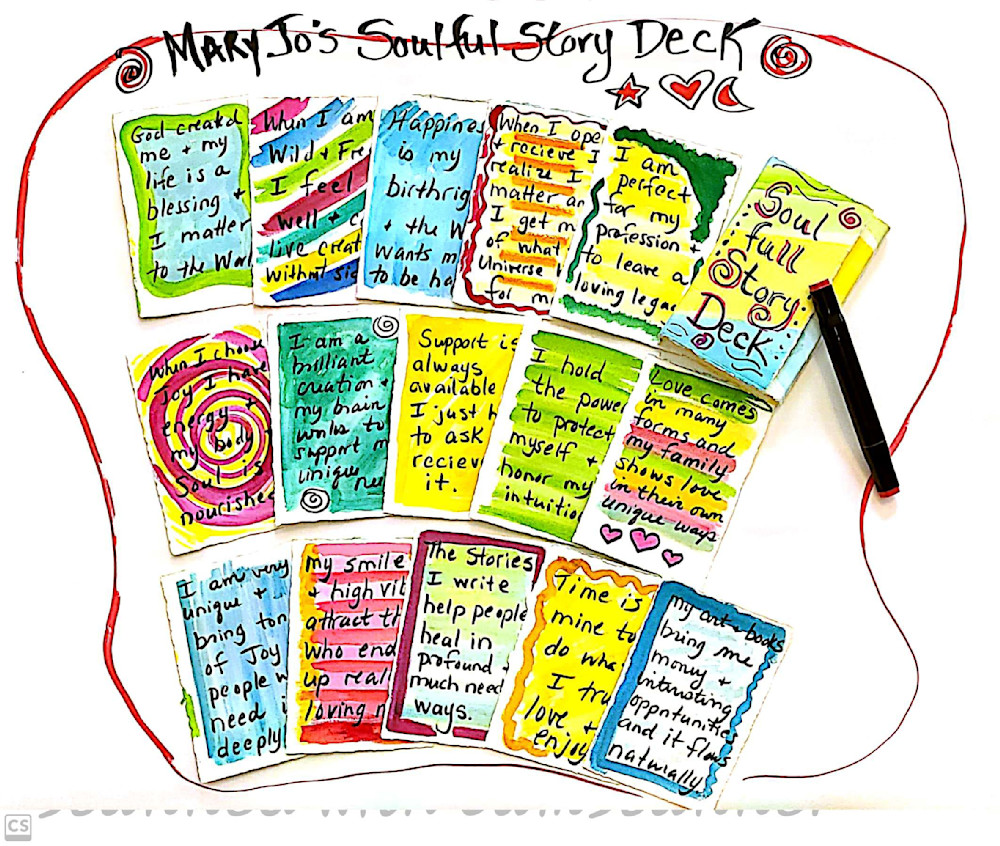 MARY Jo's Soulful Story Deck
God created
me + my
life is a
blessing +
I matter
to the Worl
When I am
Wild + Fre
I feel
well + c
live creat
without sic
Happines
is my
birthrig
+ the W
wants m
to be ha
When I ope
+ recieve I
realize I
matter an
I get m
of what
Universe
for m
I am
perfect
for my
profession +
to leave a
loving legac
Soul
full
Story
Deck
When I choose
Joy I have
energy +
my body
Soul is
nourished
I am a
brilliant
creation +
my brain
works to
support m
unique
nee
Support is
always
available
I just h
to ask
reciev
it.
I hold
the power
to protect
myself +
honor my
intuition
Love comes
in many
forms and
my family
shows love
in their own
unique ways
I am very
unique +
bring ton
of Joy
people w
need i
deeply
my smile
+ high vib
attract th
who end
up real
loving m
The Stories
I write
help people
heal in
profound +
much need
ways.
Time is
mine to
do wha
I tru
love +
enjoy
my art + books
bring me
money +
interesting
opportunities
and it flows
naturally.
CS